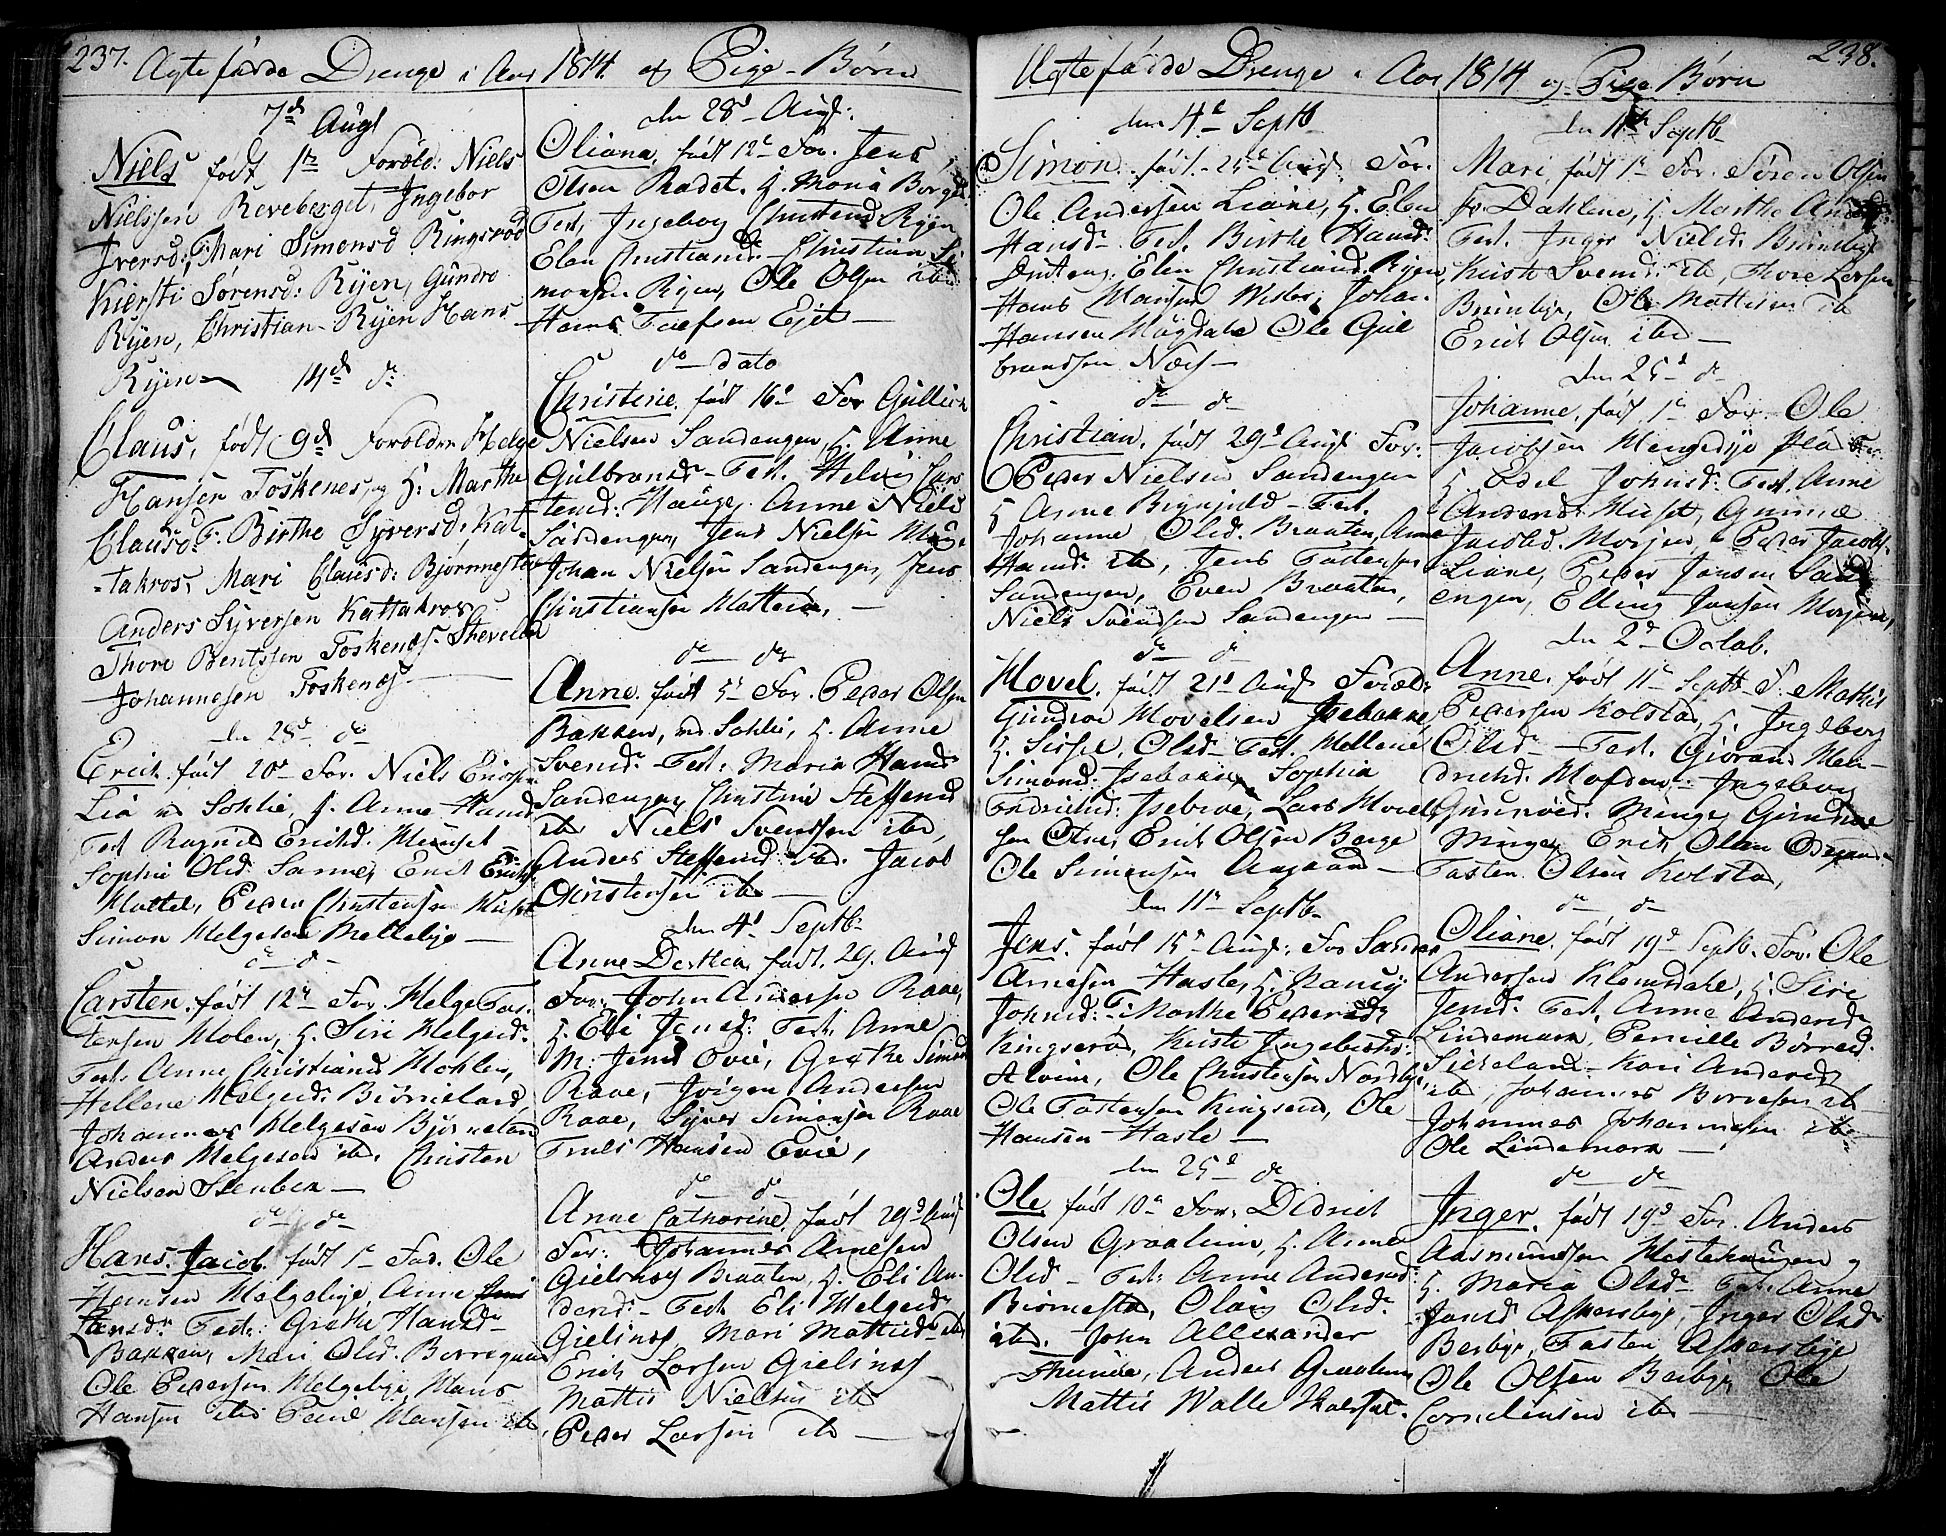 237. Ægte fødde Drenge i Aar 1814. og Pige-Børn
7de Augt
Niels født 1te Foræld: Niels
Nielssen Reveberget, Ingebor
Iversd: F: Mari Simonsd Ringsrød
Kiersti Sørensd: Ryen, Gundro
Ryen, Christian Ryen Hans
Ryen
14de do
Claus, født 9de Forældre Helge
Hansen Toskenes, og H: Marthe
Clausd: F. Birthe Syversd: Kat-
takros, Mari Clausd: Bjørnnestad
Anders Syversen Kattakros
Thore Bentssen Toskenes Stevelin
Johannesen Toskenes
den 28de do
Erich. født 20de For. Niels Erichsen
Lia ved Sohlie, h. Anne Hansd
Test Ragnild Erichd. Huuset
Sophie Olsd. Sanne, Erich Erichs.
Klattel, Peder Christensen Huset
Simon Helgesen Mellebye
do d-
Carsten. født 12te For. Helge Tor-
tersen Molen, H. Siri Helgesd.
Test. Anne Christiansd Mohlen,
Hellene Helgesd: Biørneland
Johannes Helgesen Bjørneland
Anders Helgesen ibd. Christen
Nielsen Steuben
do do
Hans Jacob. født 1te Fad. Ole
Hansen Helgebye, Anne
Hansd. Test: Grethe Hansd
Bakken, Mari Olsd. Borregaard
Ole Pedersen Helgebye, Hans
Hansen ibd Poul Hansen ibd.
den 28de Aug:
Oliana, født 12te For. Jens
Olsen Rødet. H. Maria Borgd.
Test, Ingeborg Christensd Ryen
Elen Christiansd. Christian Si-
monsen Ryen, Ole Olsen ibd
Hans Tolefsen Eget
do dato
Christine. født 16de For Gullich
Nielsen Sandengen, H. Anne
Gulbrandsd. Test. Helvig Cars-
tensd: Hauge, Anne Niels
Sandengen, Jens Nielsen
Johan Nielsen Sandengen, Jens
Christiansen Hatten,
do do
Anne. født 5te For. Peder Olsen
Bakken, ved Sohlie, H. Anne
Svensd. Test: Maria Hansd
Sandengen Christine Steffensd
ibd Niels Svendsen ibd,
Anders Steffensd ibd. Jacob
Christensen ibd
den 4de Septb-
Anne Dorthea, født 29. Aug
For. John Andersen Raae,
H. Eli Jensd: Test. Anne
M: Jensd Evie, Grethe Simonsd
Raae, Jørgen Andersen
Raae, Syver Simonsen Raae
Truels Hansen Evie,
do do
Anne Cathorine, født 29de Aug
For: Johannes Arnesen
Gielsnøs Braaten, H. Eli An-
dersd. Test. Eli Helgesd
Gielinøs, Mari Mattisd. ibd
Erich Larsen Gielinøs
Mattis Nielsen ibd
Peder Larsen ib
Ægte fødde Drenge i Aar 1814 og Pige Børn 238.
den 4de Septb
Simon. født 25de Aug. For.
Ole Andersen Liane, H. Elen
Hansd. Test. Birthe Hansd.
Elen Christiansd. Ryen,
Hans Hansen Wister Johan
Hansen Møgdale Ole Gul
brandsen Næs
do do
Christian. født 29de Aug For:
Peder Nielsen Sandengen
H Anne Test.
Johanne Olsd. Braaten, Anne
Hansd: ib, Jens Tostensen
Sandengen, Even Braaten,
Niels Svendsen Sandengen
do do
Hovel, født 21de Aug Foræld:
Gundroe Hovelsen Isebakke,
H. Sisse Olsd. Test. Hellene
Simonsd: Isebakke Sophia
Fredrichsd: Isebroe, Lars Hovel
sen Erich Olsen Berge
Ole Simensen Aagaard
den 11te Septb-
Jens. født 15de Aug: For
Arnesen Hasle, H. Nancy
Johnsd: F: Marthe Pedersd
Kingserød, Kirsti Ingebrets:
Alvim, Ole Christensen Nordbye,
Ole Tostensen Kingserød, Ole
Hansen Hasle
den 25de do
Ole. født 10de For: Didrich
Olsen Graalum, H. Anne
Olsd. Test: Anne Andersd.
Biørnestad, Olaug Olsd.
ibd. John Allexander
Anders Graalum
Mattis Walle
den 11te Septb
Mari, født 1te For. Søren Olsen
Dahlene, H. Marthe
Test. Inger Nielsd. Brunbye
Kirsti Svensd: ib, Thore Larsen
Brunbye, Ole Mattisen ib
Erich Olsen ibd
den 25de do
Johanne, født 1te For. Ole
Jacobsen Mengedye
H. Edel Johnsd: Test. Anne
Andersd: Huset, Gunnie
Jacobsd. Mosjen, Peder Jacobs.
Liane, Peder Jansen Sand
engen, Elling Jansen Mosjen,
den 2de Octob.
Anne. født 11te Septb. F. Mathis
Pedersen Kolstad, H. Ingeborg
Olsd. Test. Giorand Hen-
drichsd. Ingeborg
Gunnersd. Minge, Gundroe
Minge, Erich Olsen Ødegaard
Tosten Olsen Kolstad,
do do
Oliane. født 19de Septb. For. Ole
Andersen Klomsdale, H. Siri
Jensd: Test. Anne Andersd
Lindemark, Pernille Børresd.
Kari Andersd
ib, Johannes Børresen ib
Johannes Johannesen ibd
Ole Lindemark
do do
Inger, født 19de For. Anders
Aasmundsen Hestehaugen og
H. Maria Olsd. Test. Anne
Jansd Aspersbye, Inger Olsd
Berbye, Tosten Aspersbye
Ole Olsen Berbye, Ole
Corneliusen ib